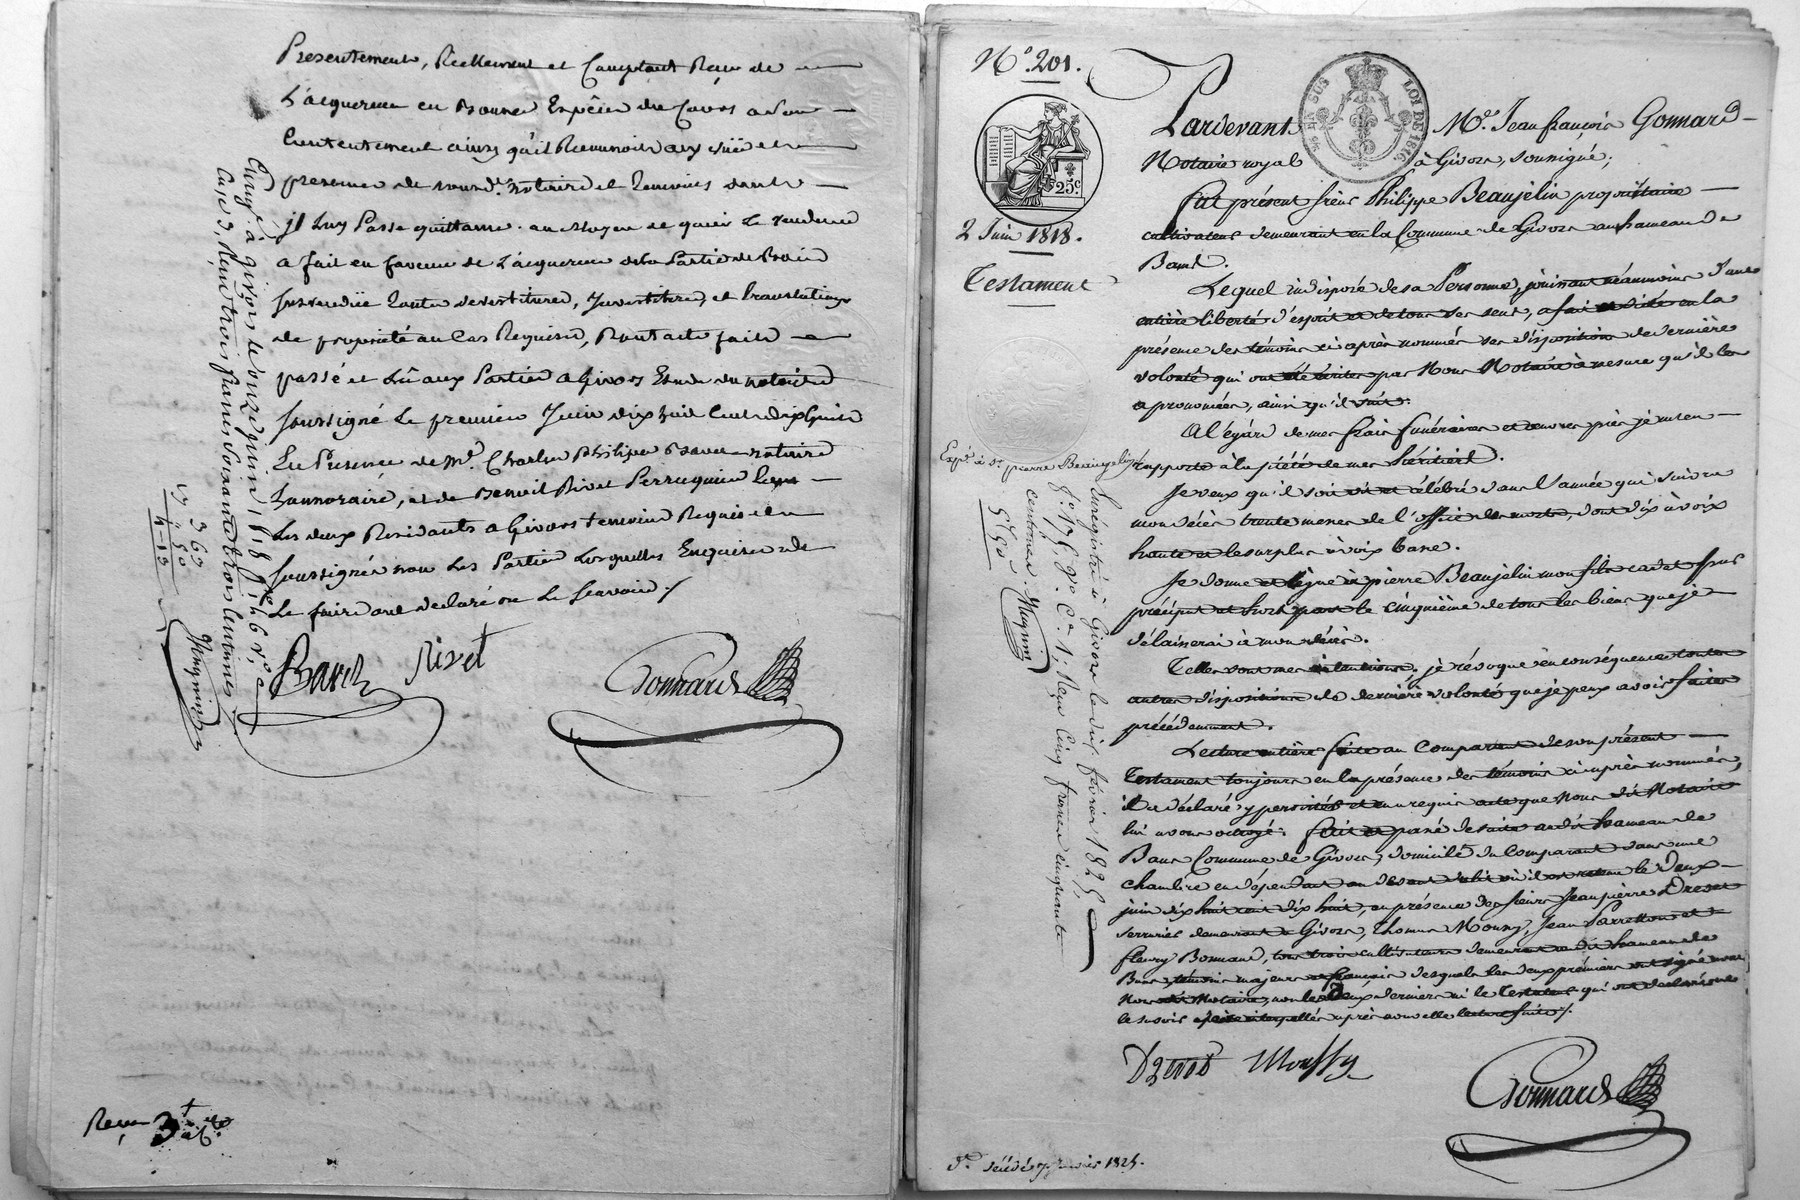 Presentement, Réellement et Comptant Reçu de
L'acquereur en Bonnes Espèces du Cours a Son
Contentement ainsy qu'il Reconnoit aux vüe et
presence de nous d. notaire et Temoins dont
jl Luy Passe quittance. au Moyen de quoi Le vendeur
a fait en faveur de L'acquereur de la Partie de Bois
Susvendüe Toutes devestitures, Investitures, et translations
de propriété au Cas Requises, Dont acte fait
passé et Lû aux Parties a Givors Etude du notaire
soussigné Le premier Juin dix huit Cent dix huit
En Presence de Mr. Charles Philipe Baver notaire
honnoraire, et de Benoit Rivet Perruquier
Les deux Residants a Givors temoins Requis et
soussignés non Les Parties Lesquelles Enquises de
Le faire ont declaré ne Le Scavoir ./
Rivet
Gonnard
Enreg.é à givors le onze juin 1818
Case 3, Reçu trois francs soixante trois centimes
3 63
Magnin
Reçu 3
N.° 201.
25c
2 Juin 1818.
Testament
EN SUS LOI DE 1816
Pardevant M.e Jean françois Gonnard
Notaire royal à Givors, soussigné;
fut présent sieur Philippe Beaujelin propriétaire
cultivateur demeurant en la Commune de Givors au hameau de
Bans.
Lequel indisposé de sa Personne, jouissant néanmoins d'une
entière liberté d'esprit et de tous ses sens, a fait et dicté en la
présence des témoins ci après nommés ses dispositions de dernière
volonté qui ont été écrites par Nous Notaire à mesure qu'il les
a prononcées, ainsi qu'il suit:
A l'égard de mes frais funéraires et œuvres pies je m'en
rapporte à la piété de mes héritiers.
Je veux qu'il soit dit et célébré dans l'année qui suivra
mon décès trente messes de l'office des morts, dont dix à voix
haute et le surplus à voix basse.
Je donne et lègue à pierre Beaujelin mon fils cadet pour
précipat et hors part le cinquième de tous les biens que je
délaisserai à mon décès.
Telles sont mes intentions, je révoque en conséquence toutes
autres dispositions de dernière volonté que je peux avoir faites
précédemment.
Lecture entière faite au Comparant de son présent
Testament toujours en la présence des témoins ci après nommés,
il a déclaré y persister et en a requis acte que Nous dit Notaire
lui avons octroyé. fait et passé de suite au dit hameau de
Bans Commune de Givors, domicile du Comparant dans une
chambre en dépendant au devant du lit où il est retenu le Deux
juin dix huit cent dix huit, en présence des sieurs Jean pierre Drevet
serrurier demeurant à Givors, Thomas Moussy, Jean Parretton et
fleury Bonnand, tous trois cultivateurs demeurant au dit hameau de
Bans, témoins majeurs et français desquels les deux premiers ont signé avec
Nous dit Notaire, non les deux derniers ni le Testateur qui ont déclaré ne
le savoir faire interpellés après nouvelle lecture faite ./.
Drevet Moussy
Gonnard
Exp.é à S.r pierre Beaujelin
Enrégistré à Givors le dix février 1825
f.° 17 v.° c.e 1; Reçu Cinq francs cinquante
centimes Magnin
5f 50c